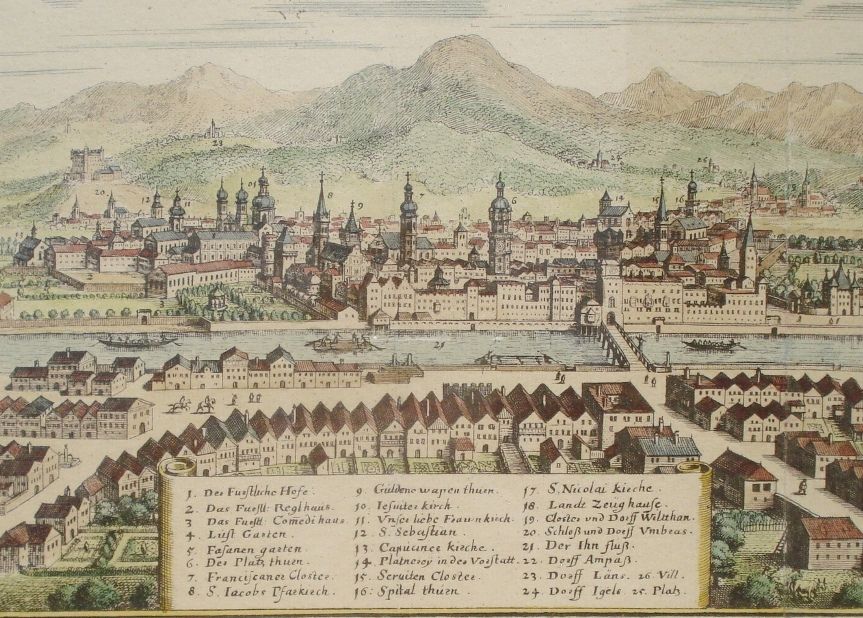 1. Der Fürstliche Hofe.
2. Das Fürstl: Reglhaus.
3 Das Fürstl: Comedihaus.
4 Lust Garten.
5 Fasanen garten.
6 Der Platz thurn.
7 Franciscaner Closter.
8 S. Iacobs Pfarkirch.
9 Guldene wapen thurn.
10. Iesuiter kirch.
11. Vnser liebe Frawn kirch.
12 S. Sebastian.
13. Capuciner kirche.
14. Platnerey in der Vorstatt.
15. Seruiten Closter.
16: Spital thurn.
17 S. Nicolai kirche.
18. Landt Zeughause.
19. Closter vnd Dorff Wilthan.
20. Schloß und Dorff Vmbras.
21. Der Ihn fluß.
22. Dorff Ampaß.
23. Dorff Läns. 26. Vill.
24. Dorff Igels. 25. Platz.